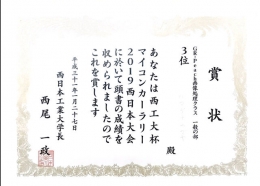 賞状
GR-Peach画像処理クラス 一般の部
3位
殿
あなたは西工大杯
マイコンカーラリー
2019西日本大会
に於いて頭書の成績を
収められましたので
これを賞します
平成三十一年一月二十七日
西日本工業大学長
西尾 一政